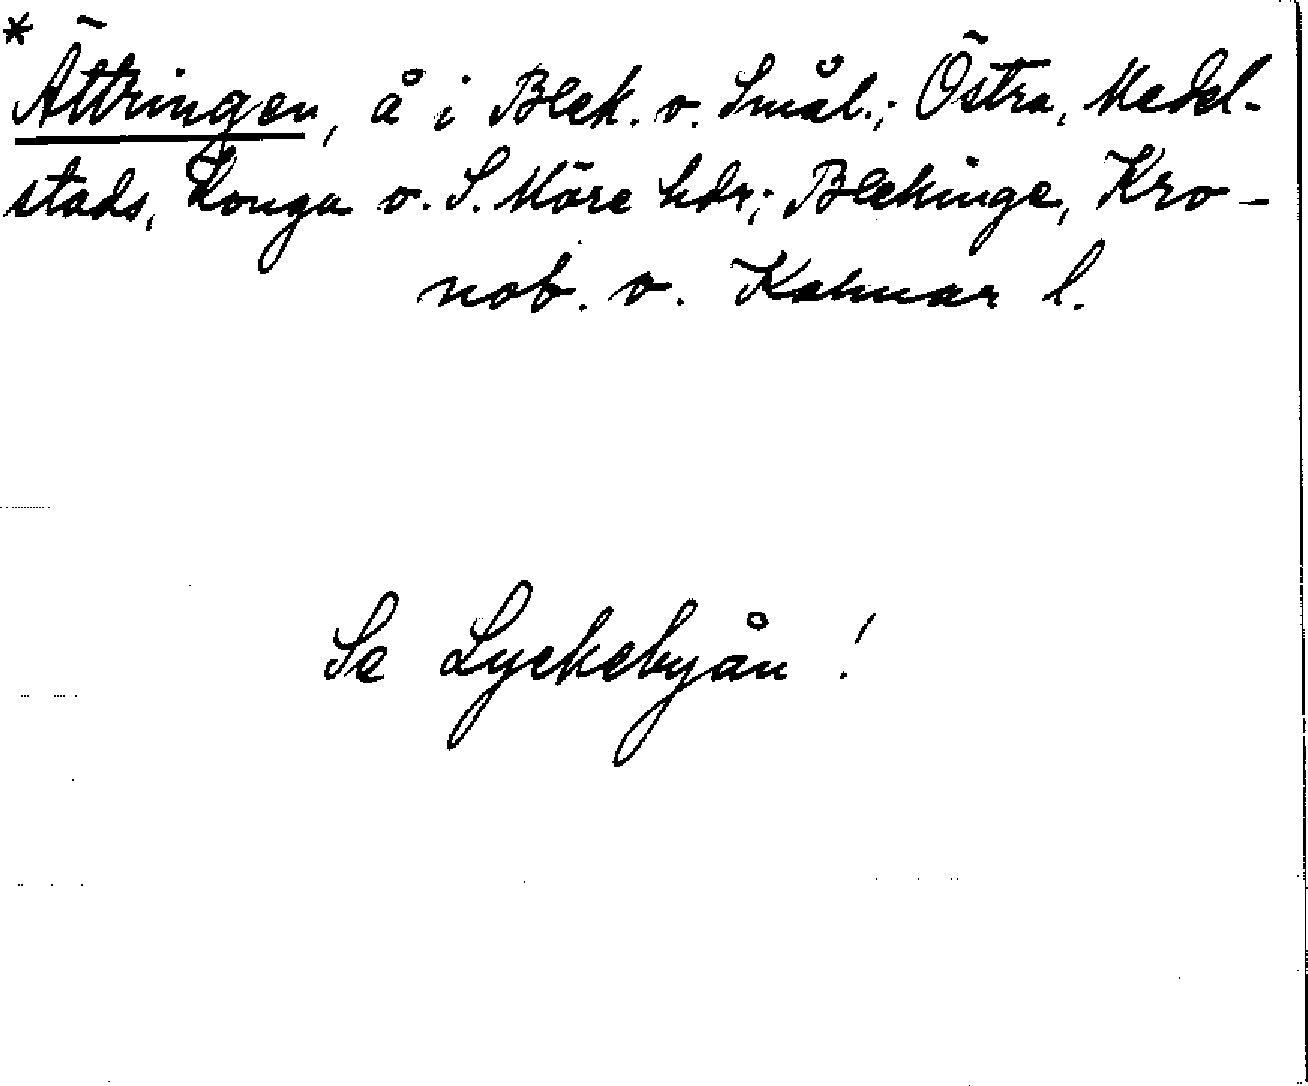 * Ättringen, å i Blek. o. Smål.; Östra, Medel-
stads, Konga o. S. Möre hdr; Blekinge, Kro-
nob. o. Kalmar l.
Se Lyckebyån!